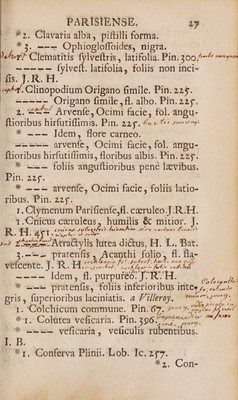 PARISIENSE. 27
*2. Clavaria alba, pistilli forma.
*3. --- Ophioglossoides, nigra.
Clematitis sylvestris, latifolia. Pin. 300.
------ sylvest. latifolia, foliis non inci-
sis. J. R. H.
Clinopodium Origano simile. Pin. 225.
----- Origano simile, fl. albo. Pin. 225.
2. --- Arvense, Ocimi facie, fol. angu-
stioribus hirsutissimis. Pin. 225.
* --- Idem, flore carneo.
----- arvense, Ocimi facie, fol. angu-
stioribus hirsutissimis, floribus albis. Pin. 225.
* ---- foliis angustioribus penè lævibus.
Pin. 225.
* --- arvense, Ocimi facie, foliis latio-
ribus. Pin. 225.
1. Clymenum Parisiense, fl. cæruleo J. R. H.
1. Cnicus cæruleus, humilis & mitior. J.
R. H. 451.
Atractylis lutea dictus, H. L. Bat.
3. --- pratensis, Acanthi folio, fl. fla-
vescente. J. R. H.
---- Idem, fl. purpureo. J. R. H.
* --- pratensis, foliis inferioribus inte-
gris, superioribus laciniatis. a Villeroy.
1. Colchicum commune. Pin. 67.
* 1. Colutea vesicaria. Pin. 396.
* ---- vesicaria, vesiculis rubentibus.
I. B.
* 1. Conferva Plinii. Lob. Ic. 257.
* 2. Con-